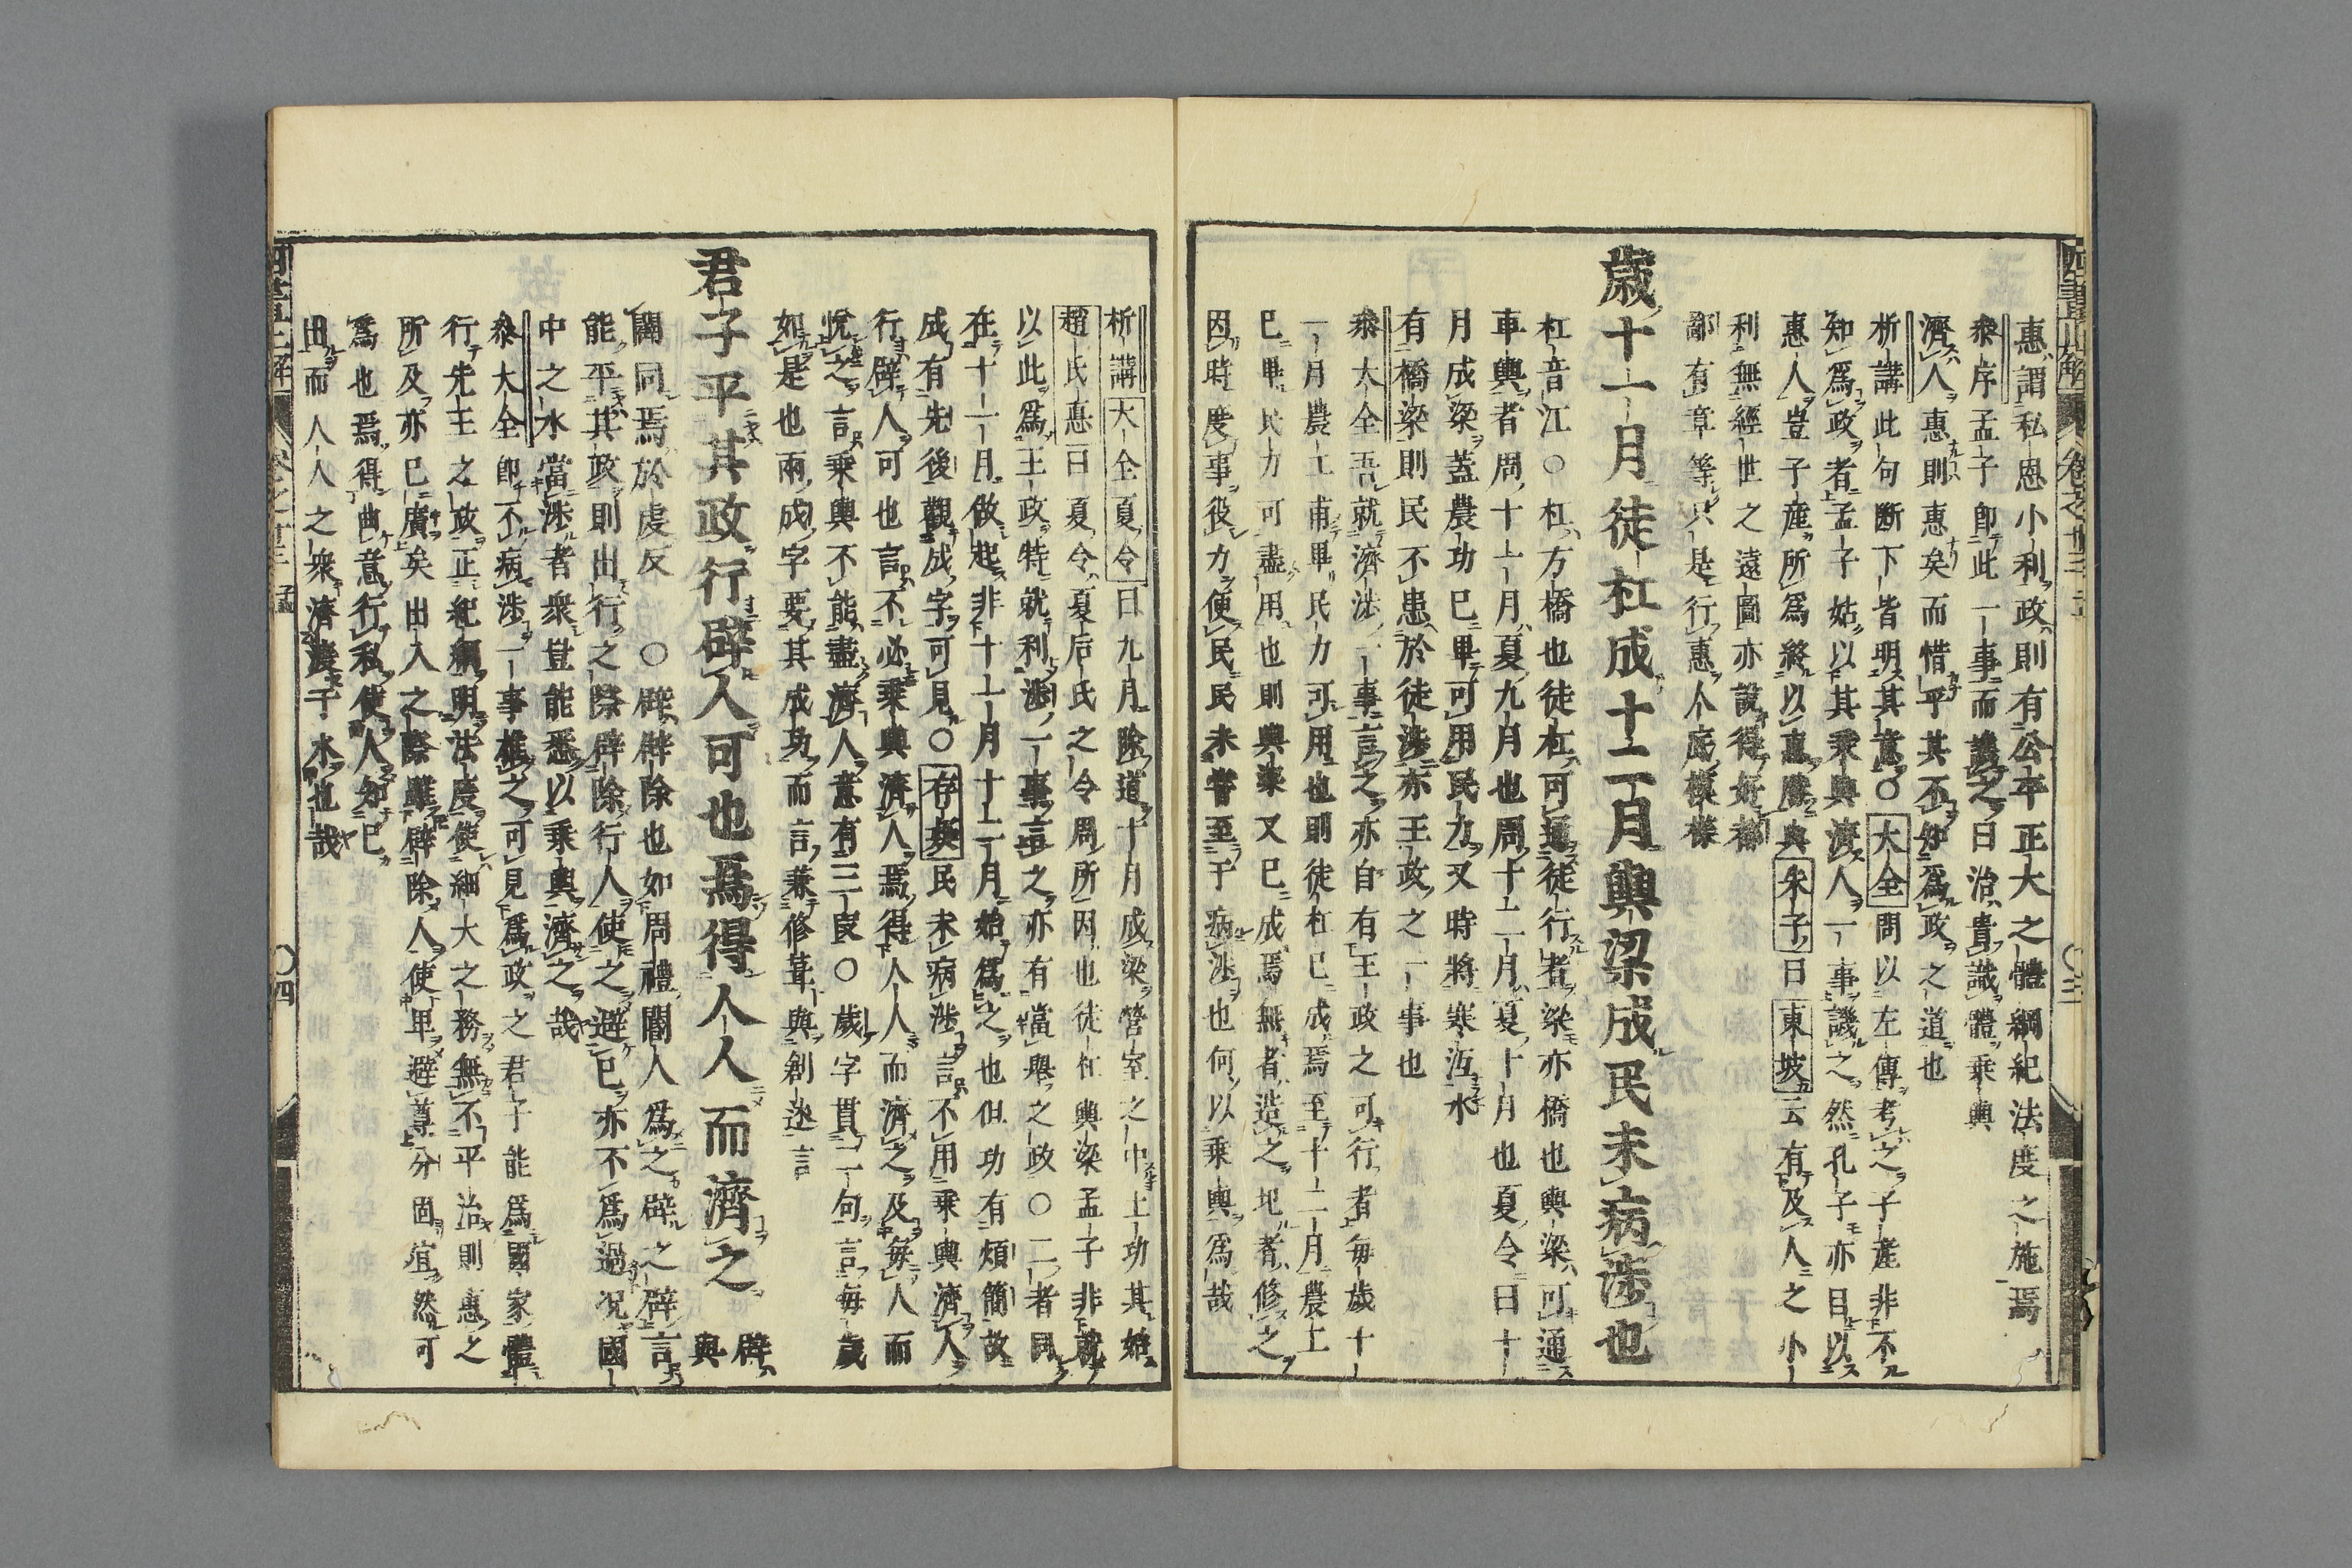 惠謂私恩小利政則有公平正大之體綱紀法度之施焉
叅序孟子即此一事而議之曰治貴識體乘輿
濟人惠則惠矣而惜乎其不知爲政之道也
析講此句断下皆明其意○大全問以左傳考之子產非不
知爲政者孟子姑以其乘輿濟人一事議之然孔子亦目以
惠人豈子產所爲終以惠勝與朱子曰東坡云有及人之小
利無經世之遠圖亦說得好都
鄙有章等只是行惠人底模樣
歲十一月徒杠成十二月輿梁成民未病涉也
杠音江○杠方橋也徒杠可通徒行者梁亦橋也輿梁可通
車輿者周十一月夏九月也周十二月夏十月也夏令曰十
月成梁蓋農功已畢可用民力又時將寒沍水
有橋梁則民不患於徒涉亦王政之一事也
叅大全吾就濟涉一事言之亦自有王政之可行者每歲十
一月農工甫畢民力可用也則徒杠已成焉至十二月農工
已畢民力可盡用也則輿梁又已成焉無者造之圯者修之
因時度事役力便民民未嘗至于病涉也何以乘輿爲哉
析講大全夏令曰九月除道十月成梁營室之中土功其始
趙氏惠曰夏令夏后氏之令周所因也徒杠輿梁孟子非就
以此爲王政特就利涉一事言之亦有當舉之政○二者同
在十一月做起非十一月十二月始爲之也但功有煩簡故
成有先後觀成字可見○存疑民未病涉言不用乘輿濟人
行辟人可也言不必乘輿濟人焉得人人而濟之及每人而
悅之言乘輿不能盡濟人意有三段○歲字貫二句言每歲
如是也兩成字要其成功而言兼修葺與創造言
君子平其政行辟人可也焉得人人而濟之 辟與
闢同焉於虔反 ○辟辟除也如周禮閽人爲之辟之辟言
能平其政則出行之際辟除行人使之避已亦不爲過況國
中之水當涉者衆豈能悉以乘輿濟之哉
叅大全即不病涉一事推之可見爲政之君子能爲國家體
行先王之政正紀綱明法度使細大之務無不平治則惠之
所及亦已廣矣出入之際雖辟除人使卑避尊分固宜然可
爲也焉得曲意行私使人知已
出而人人之衆濟渡于水也哉
四書 卷之 ○三
卷之 孟 ○四